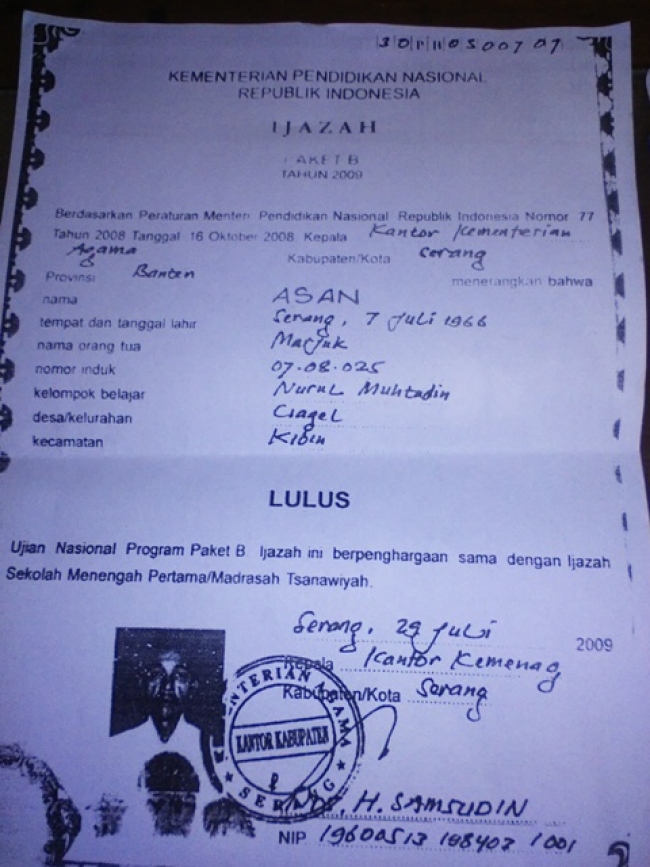 30PB0500707
KEMENTERIAN PENDIDIKAN NASIONAL
REPUBLIK INDONESIA
IJAZAH
PAKET B
TAHUN 2009
Berdasarkan Peraturan Menteri Pendidikan Nasional Republik Indonesia Nomor 77
Tahun 2008 Tanggal 16 Oktober 2008 Kepala Kantor Kementerian
Agama Kabupaten/Kota Serang
Provinsi Banten menerangkan bahwa
nama ASAN
tempat dan tanggal lahir Serang, 7 Juli 1966
nama orang tua Marjuk
nomor induk 07.08.025
kelompok belajar Nurul Muhtadin
desa/kelurahan Ciagel
kecamatan Kibin
LULUS
Ujian Nasional Program Paket B. Ijazah ini berpenghargaan sama dengan Ijazah
Sekolah Menengah Pertama/Madrasah Tsanawiyah.
Serang, 29 Juli 2009
Kepala Kantor Kemenag
Kabupaten/Kota Serang
KANTOR KABUPATEN
SERANG
H. SAMSUDIN
NIP 19600513 198403 1001